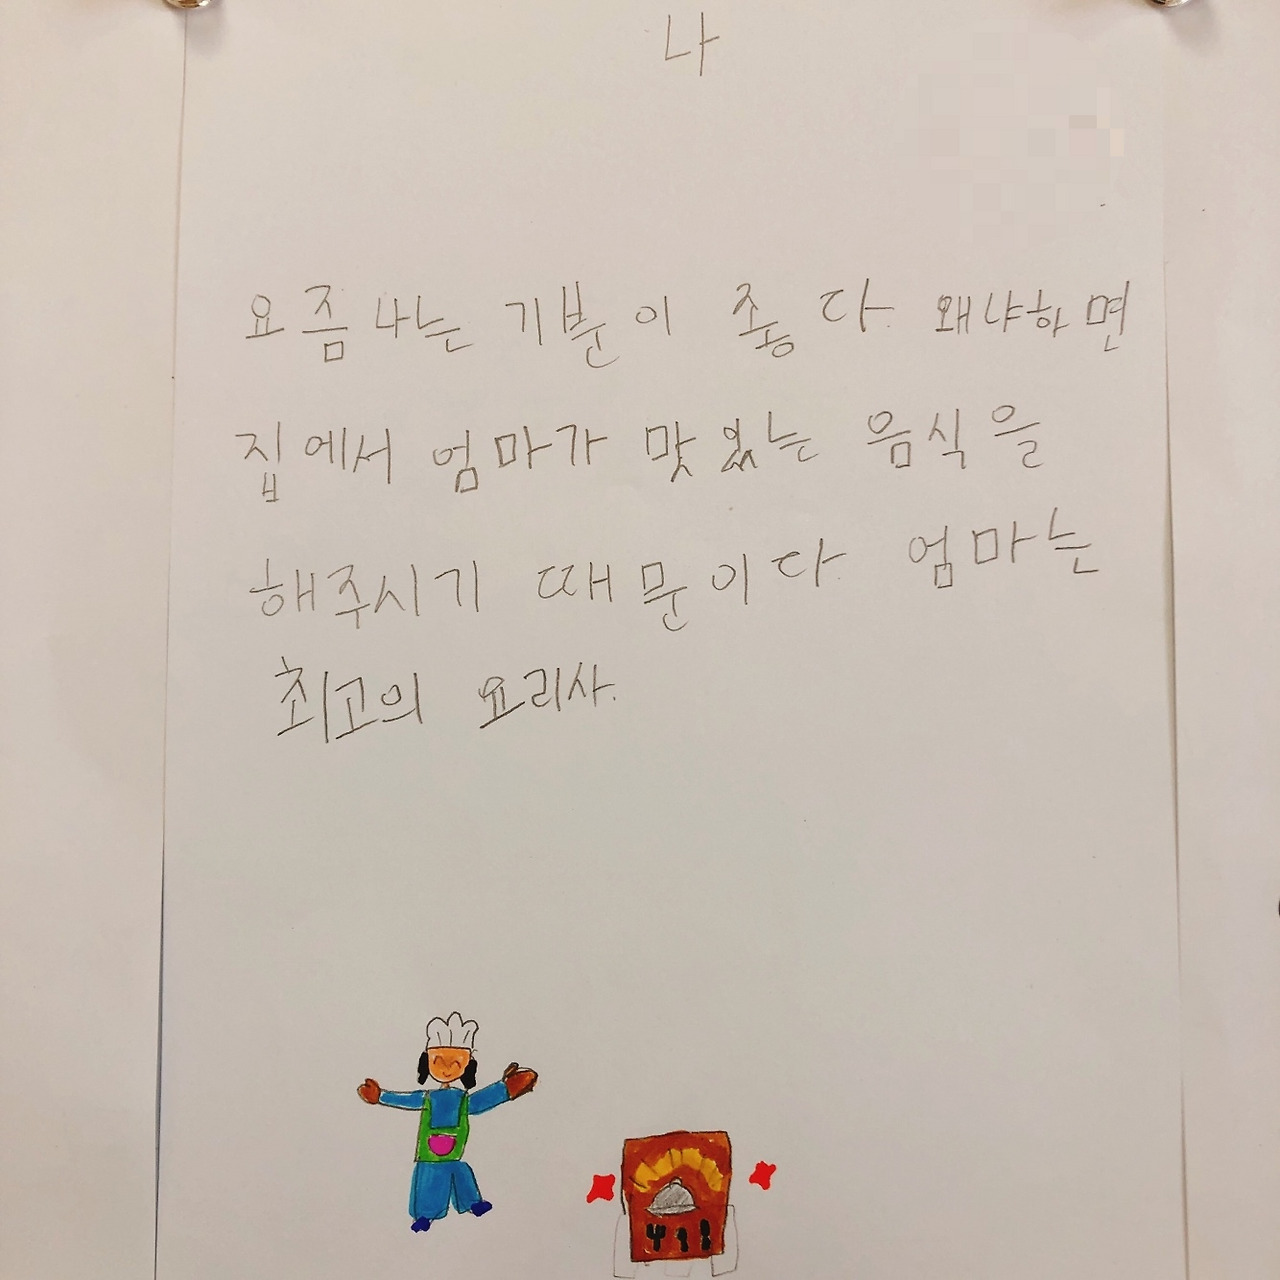 나
요즘 나는 기분이 좋다. 왜냐하면
집에서 엄마가 맛있는 음식을
해주시기 때문이다. 엄마는
최고의 요리사.